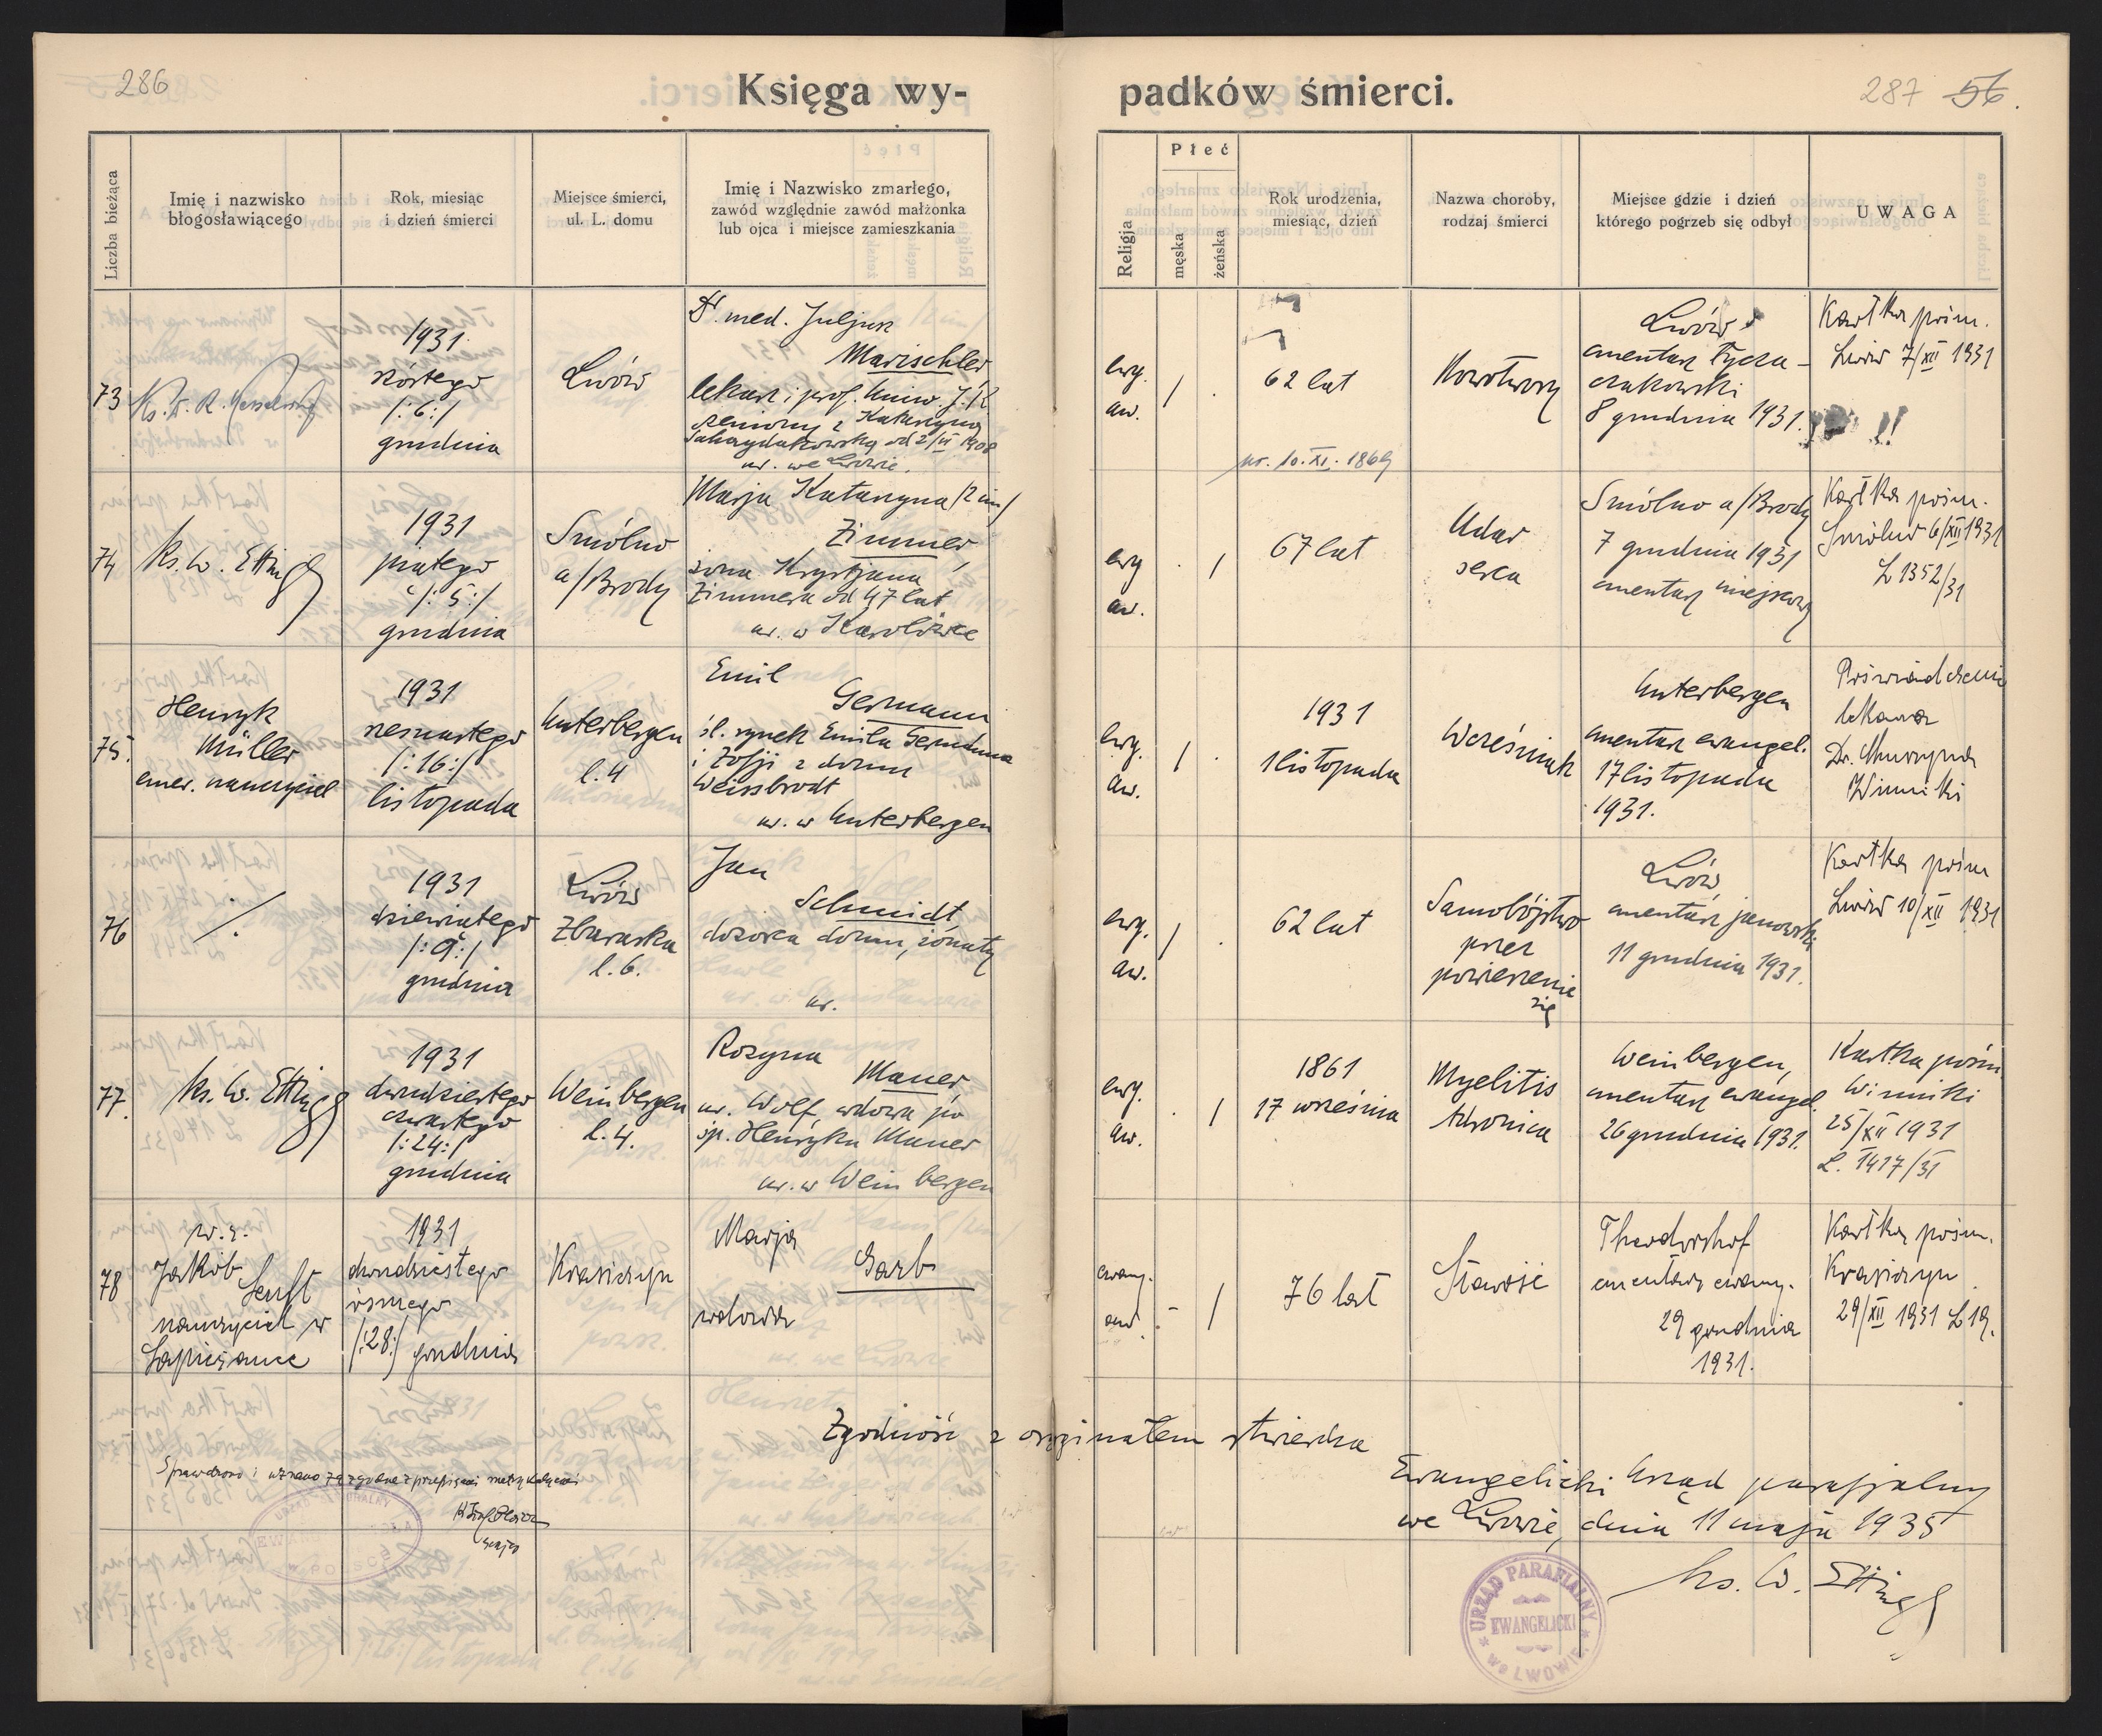 286
Księga wy-
padków śmierci.
287 56.
Liczba bieżąca
Imię i nazwisko
błogosławiącego
Rok, miesiąc
i dzień śmierci
Miejsce śmierci,
ul. L. domu
Imię i Nazwisko zmarłego,
zawód względnie zawód małżonka
lub ojca i miejsce zamieszkania
Religja
Płeć
męska
żeńska
Rok urodzenia,
miesiąc, dzień
Nazwa choroby,
rodzaj śmierci
Miejsce gdzie i dzień
którego pogrzeb się odbył
UWAGA
73
Ks. Dr. R.
1931
szóstego
/:6:/
grudnia
Lwów
Dr. med. Juljusz
Marischler
lekarz i prof. Uniw. J. K.
żeniony z Katarzyną
Sahaydakowską od 2/VI 1908
ur. we Lwowie.
ewg.
aw.
/ .
62 lat
ur. 10. XI. 1869
Nowotwory
Lwów
cmentarz Łycza-
czakowski
8 grudnia 1931.
Kartka pośm.
Lwów 7/XII 1931
!!
74
Ks. W. Ettinger
1931
piątego
/:5:/
grudnia
Smólno
a/Brody
Marja Katarzyna /2 im/
Zimmer,
żona Krystjana
Zimmera od 47 lat
ur. w Karolówce
ewg
aw.
. /
67 lat
Udar
serca
Smólno a/Brody
7 grudnia 1931
cmentarz miejscowy
Kartka pośm.
Smólno 6/XII 1931
L 1352/31
75.
Henryk
Müller
emer. nauczyciel
1931
szesnastego
/:16:/
listopada
Unterbergen
l. 4
Emil
Germann
śl. synek Emila Germanna
i Zofji z domu
Weissbrodt
ur. w Unterbergen
ewg.
aw.
/ .
1931
1 listopada
Wcześniak
Unterbergen
cmentarz ewangel.
17 listopada
1931.
Poświadczenie
lekarza
Dr.
Winniki
76
/.
1931
dziewiątego
/:9:/
grudnia
Lwów
Zbaraska
l. 6.
Jan
Schmidt,
dozorca domu, żonaty
ur.
ewg.
aw.
/ .
62 lat
Samobójstwo
przez
powieszenie
się
Lwów
cmentarz janowski
11 grudnia 1931.
Kartka pośm
Lwów 10/XII 1931
77.
Ks. W. Ettinger
1931
dwudziestego
czwartego
/:24:/
grudnia
Weinbergen
l. 4.
Rozyna
Mauer
ur. Wolf, wdowa po
śp. Henryku Mauer
ur. w Weinbergen
ewg.
aw.
. /
1861
17 września
Myelitis
chronica
Weinbergen,
cmentarz ewangel.
26 grudnia 1931.
Kartka pośm
Winniki
25/XII 1931
L. 1417/31
78
w. z.
Jakób
Senft
nauczyciel w
Łapiszance
1931
dwudziestego
ósmego
/:28:/ grudnia
Krasiczyn
Marja
Garb
wdowa
ewang.
aw.
- /
76 lat
Starość
Theodorshof
cmentarz ewang.
29 grudnia
1931.
Kartka pośm.
Krasiczyn
29/XII 1931 L 19.
Zgodność z oryginałem stwierdza
Ewangelicki Urząd parafjalny
we Lwowie, dnia 11 maja 1935
Ks. W. Ettinger
Sprawdzono i uznano za zgodne z przepisami metrykalnymi
URZĄD PARAFIALNY
EWANGELICKI
we LWOWIE
W POLSCE